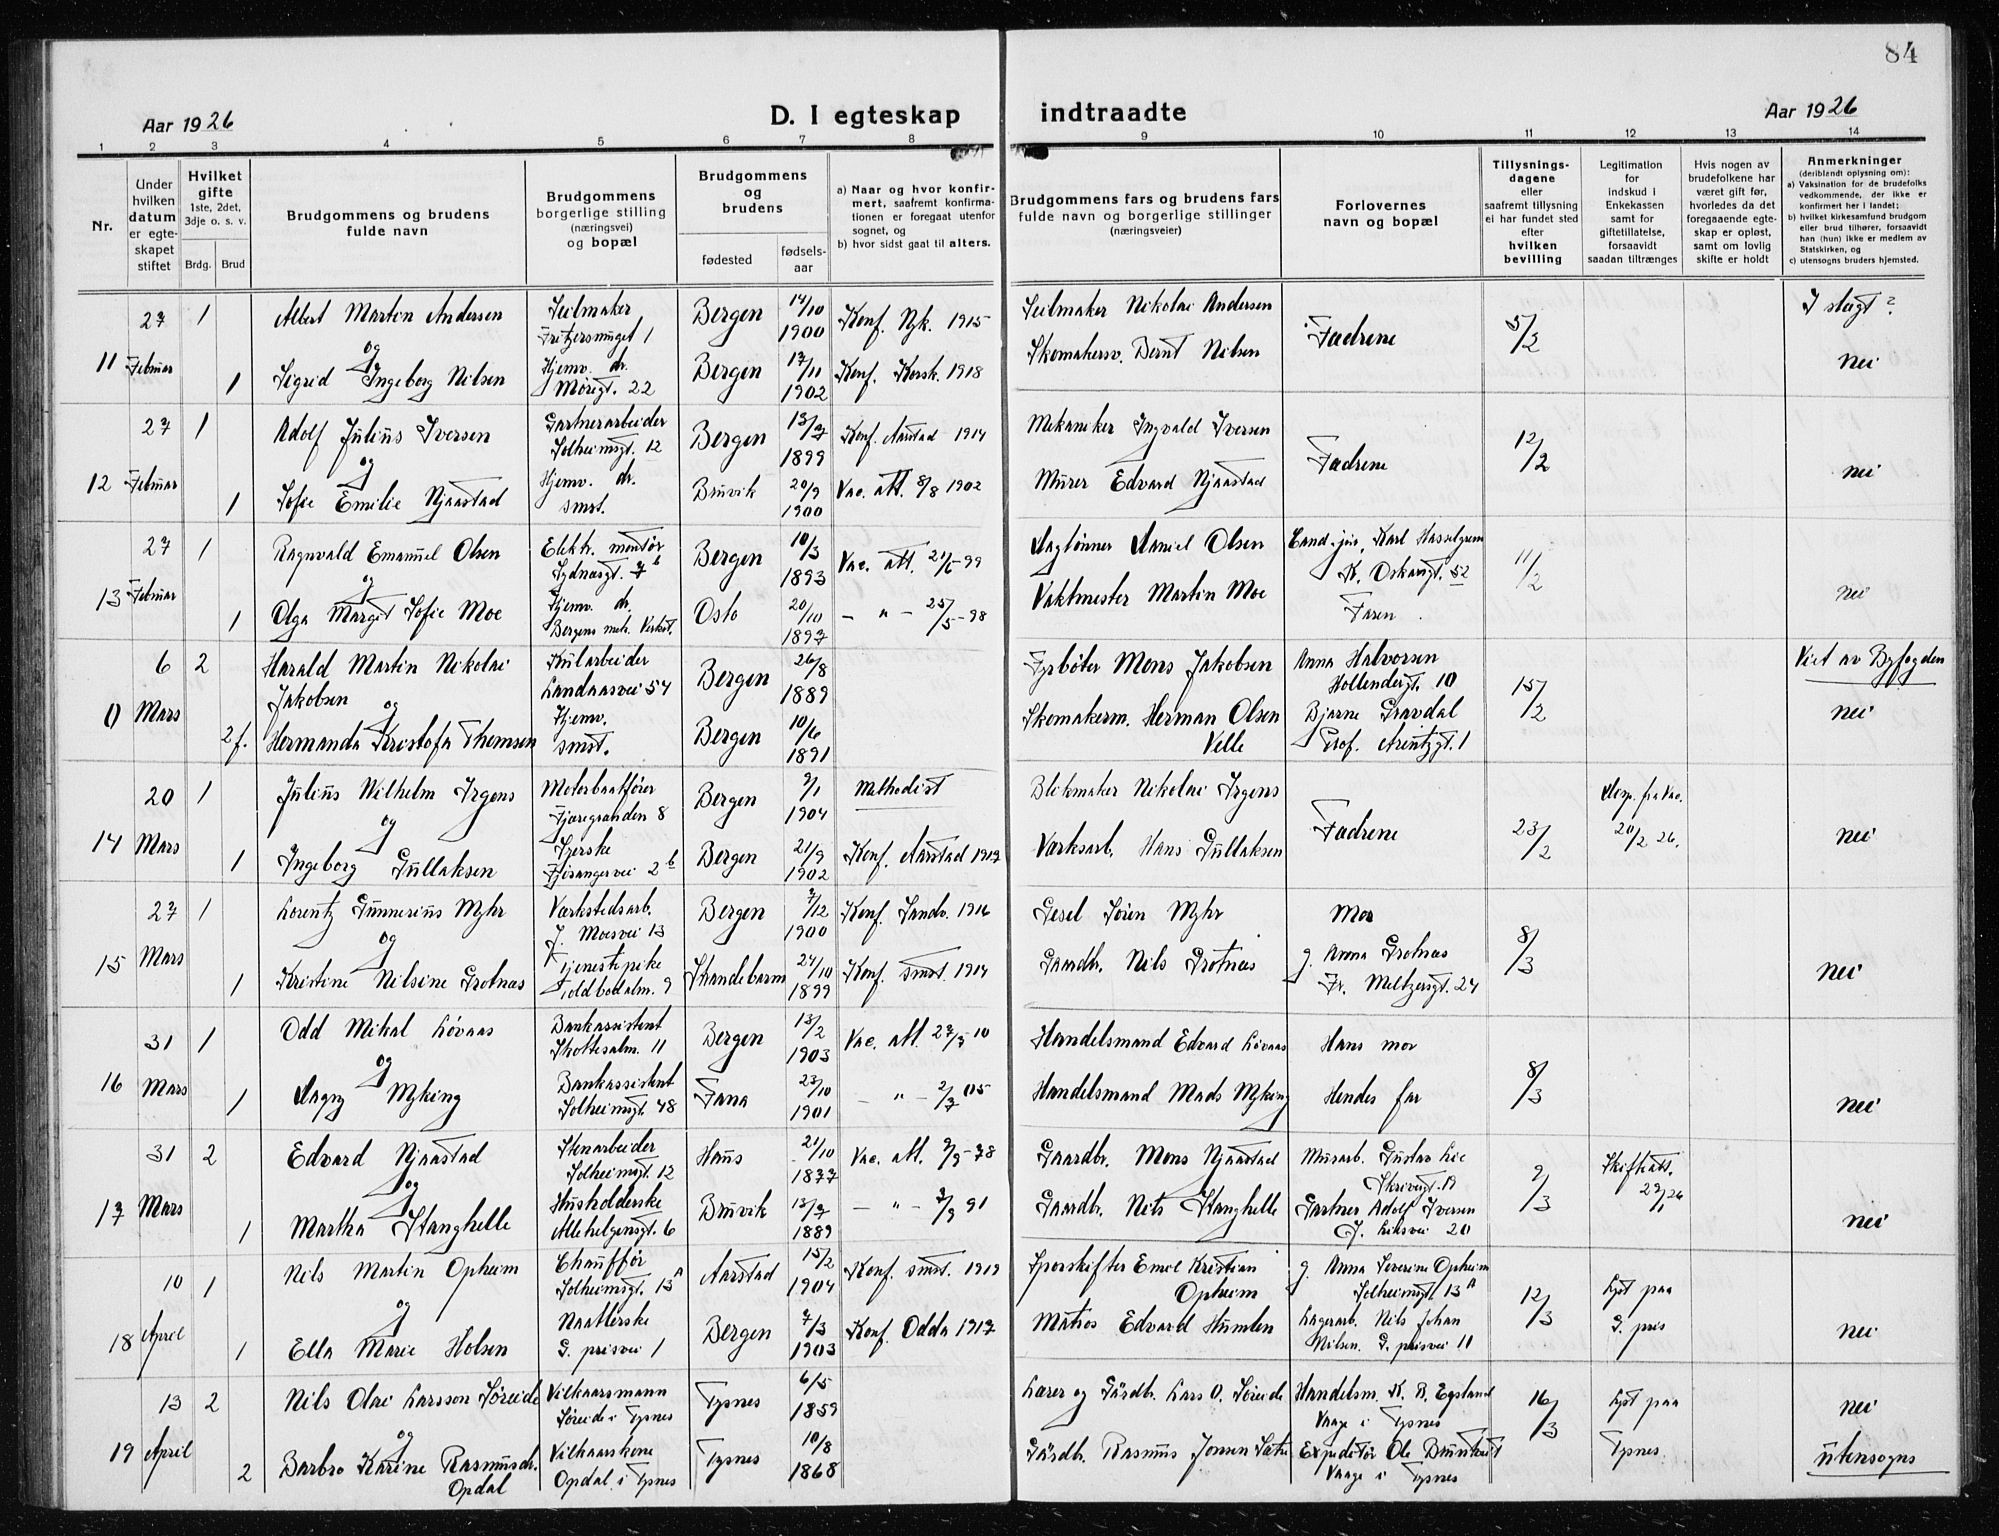 84
Aar 1926
D. I egteskap indtraadte
Aar 1926
1 2 3 4 5 6 7 8 9 10 11 12 13 14
Nr.
Under hvilken datum er egteskapet stiftet
Hvilket gifte 1ste, 2det, 3dje o. s. v.
Brdg. Brud
Brudgommens og brudens fulde navn
Brudgommens borgerlige stilling (næringsvei) og bopæl
Brudgommens og brudens
fødested
fødselsaar
a) Naar og hvor konfirmert, saafremt konfirmationen er foregaat utenfor sognet, og
b) hvor sidst gaat til alters.
Brudgommens fars og brudens fars fulde navn og borgerlige stillinger (næringsveier)
Forlovernes navn og bopæl
Tillysningsdagene eller saafremt tillysning ei har fundet sted efter hvilken bevilling
Legitimation for indskud i Enkekassen samt for giftetillatelse, forsaavidt saadan tiltrænges
Hvis nogen av brudefolkene har været gift før, hvorledes da det foregaaende egteskap er opløst, samt om lovlig skifte er holdt
Anmerkninger (deriblandt oplysning om):
a) Vaksination for de brudefolks vedkommende, der ikke er konfirmert her i landet;
b) hvilket kirkesamfund brudgom eller brud tilhører, forsaavidt han (hun) ikke er medlem av Statskirken, og
c) utensogns bruders hjemsted.
11 27 Februar 1 Albert Martin Andersen Seilmaker Fritzersmuget 1 Bergen 14/10 1900 Konf. Nyk. 1915 Seilmaker Nikolai Andersen Fædrene 5/2 I slegt?
og
1 Sigrid Ingeborg Nilsen Hjemv. dr. Mørigt. 22 Bergen 17/11 1902 Konf. Korsk. 1918 Skomakersv. Bernt Nilsen nei
12 27 Februar 1 Adolf Julius Iversen Gartnerarbeider Solheimsgt. 12 Bergen 13/7 1899 Konf. Aarstad 1914 Mekaniker Ingvald Iversen Fædrene 12/2
og
1 Sofie Emilie Njaastad Hjemv. dr. smst. Bruvik 20/9 1900 Vac. att. 8/8 1902 Murer Edvard Njaastad nei
13 27 Februar 1 Ragnvald Emanuel Olsen Elektr. montør Sydnæsgt. 7b Bergen 10/3 1893 Vac. att. 21/6-99 Dagtønner Daniel Olsen Cand. jur. Karl Hasselgreen K. Oskarsgt. 52 11/2
og
1 Olga Margit Sofie Moe Hjemv. dr. Bergens mek. Verkst. Oslo 20/10 1897 - " - 25/5-98 Vaktmester Martin Moe Faren nei
0 6 Mars 2 Harald Martin Nikolai Jakobsen Kularbeider Landaasvei 54 Bergen 26/8 1889 Fyrbøter Mons Jakobsen Anna Halvorsen Hollendergt. 10 15/2 Viet av Byfogden
og
2 f. Hermanda Kristofa Thomsen Hjemv. smst. Bergen 10/6 1891 Skomakerm. Herman Olsen Velle Bjarne Gravdal Prof. Arentzgt. 1 nei
14 20 Mars 1 Julius Wilhelm Irgens Motorbaatfører Fjæregranden 8 Bergen 9/1 1904 Methodist Blikmaker Nikolai Irgens Fædrene 23/2 Disp. fra Vac. 20/2 26.
og
1 Ingeborg Gullaksen Syerske Fjøsangervei 2b Bergen 21/9 1902 Konf. Aarstad 1917 Værksarb. Hans Gullaksen nei
15 27 Mars 1 Lorentz Gunnerius Myhr Værkstedsarb. J. Moesvei 13 Bergen 7/12 1900 Konf. Sandv. 1916 Gesel Søren Myhr Mor 8/3
og
1 Kristine Nilsine Grotnæs Tjenestepike Toldbodalm. 9 Strandebarm 24/10 1899 Konf. smst. 1914 Gaardbr. Nils Grotnæs g. Anna Grotnæs Fr. Meltzersgt. 24 nei
16 31 Mars 1 Odd Mikal Løvaas Bankassistent Skottesalm. 11 Bergen 13/2 1903 Vac. att. 27/3-10 Handelsmand Edvard Løvaas Hans mor 8/3
og
1 Dagny Myking Bankassistent Solheimsgt. 48 Fana 23/10 1901 - " - 2/7 05 Handelsmand Mads Myking Hendes far nei
17 31 Mars 2 Edvard Njaastad Stenarbeider Solheimsgt. 12 Haus 21/10 1877 Vac. att. 9/9-78 Gaardbr. Mons Njaastad Murarb. Gustav Lie Skrivergt. 19 9/3 Skifteatt. 29/1 26
og
1 Martha Stanghelle Husholderske Allehelgensgt. 6 Bruvik 13/7 1889 - " - 7/9 91 Gaardbr. Nils Stanghelle Gartner Adolf Iversen J. Liksvei 20 nei
18 10 April 1 Nils Martin Opheim Chauffør Solheimsgt. 13A Aarstad 15/2 1904 Konf. smst. 1919 Sporskifter Emil Kristian Opheim g. Anna Severine Opheim Solheimsgt. 13A 12/3 Lyst paa
og
1 Ella Marie Holsen Naatlerske S. prisvei 1 Bergen 7/3 1903 Konf. Odda 1917 Matros Edvard Humlen Lagerarb. Nils Johan Nilsen. S. prisvei 11 S. pris nei
19 13 April 2 Nils Olai Larsson Søreide Vilkaarsmann Søreide i Tysnes Tysnes 6/5 1859 Lærer og Gårdbr. Lars O. Søreide Handelsm. K. R. Egeland Vaage i Tysnes 16/3 Lyst paa nei
og
2 Barbro Karine Rasmusdr. Opdal Vilkaarskone Opdal i Tysnes Tysnes 10/8 1868 Gårdbr. Rasmus Jonsen Sætre Expeditør Ole Bruntveit Vaage i Tysnes Tysnes. utensogns